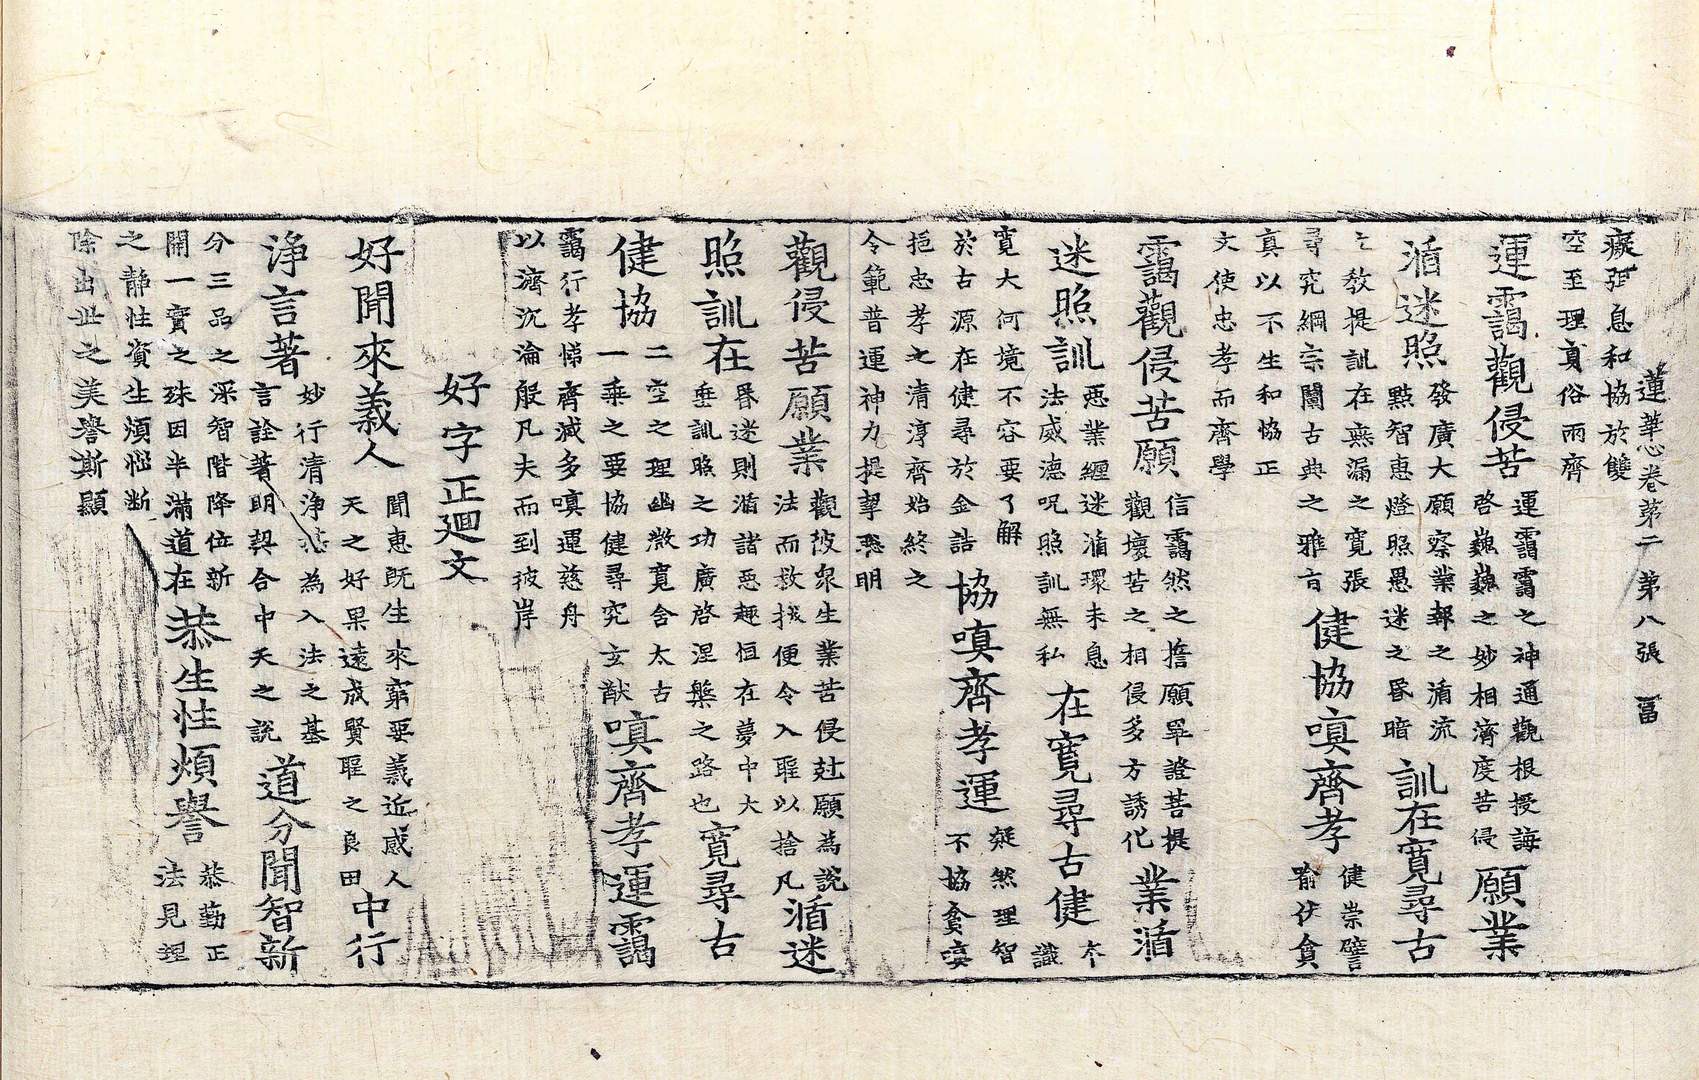 蓮華心卷第二 第八張 畐
癡弭息和協於雙
空至理眞俗而齊
運靄觀侵苦
運靄靄之神通觀根授誨
啓巍巍之妙相濟度苦侵
願業
循迷照
發廣大願察業報之循流
點智惠燈照愚迷之昏暗
訓在寬尋古
之教提訓在無漏之寬張
尋究綱宗闡古典之雅言
健協嗔齊孝
健崇譬
喻伏貪
眞以不生和協正
文使忠孝而齊學
靄觀侵苦願
信靄然之擔願早證菩提
觀壞苦之相侵多方誘化
業循
迷照訓
惡業纏迷循環未息
法威德呪照訓無私
在寬尋古健
本
識
寬大何境不容要了解
於古源在健尋於金誥
協嗔齊孝運
凝然理智
不協貪嗔
挹忠孝之清淳齊始終之
令範普運神力提挈悉明
觀侵苦願業
觀彼衆生業苦侵尅願為說
法而救拔便令入聖以捨凡
循迷
照訓在
昏迷則循諸惡趣恒在夢中大
垂訓照之功廣啓涅槃之路也
寬尋古
健協
二空之理幽微寬含太古
一乘之要協健尋究玄猷
嗔齊孝運靄
靄行孝悌齊減多嗔運慈舟
以濟沉淪般凡夫而到彼岸
好字正迴文
好聞來義人
聞惠既生來窮要義近感人
天之好果遠成賢聖之良田
中行
淨言著
妙行清淨恭為入法之基
言詮著明契合中天之說
道分聞智新
分三品之深智階降位新
開一實之殊因半滿道在
恭生性煩譽
恭勤正
法見理
之靜性資生煩惱斷
除出世之美譽斯顯